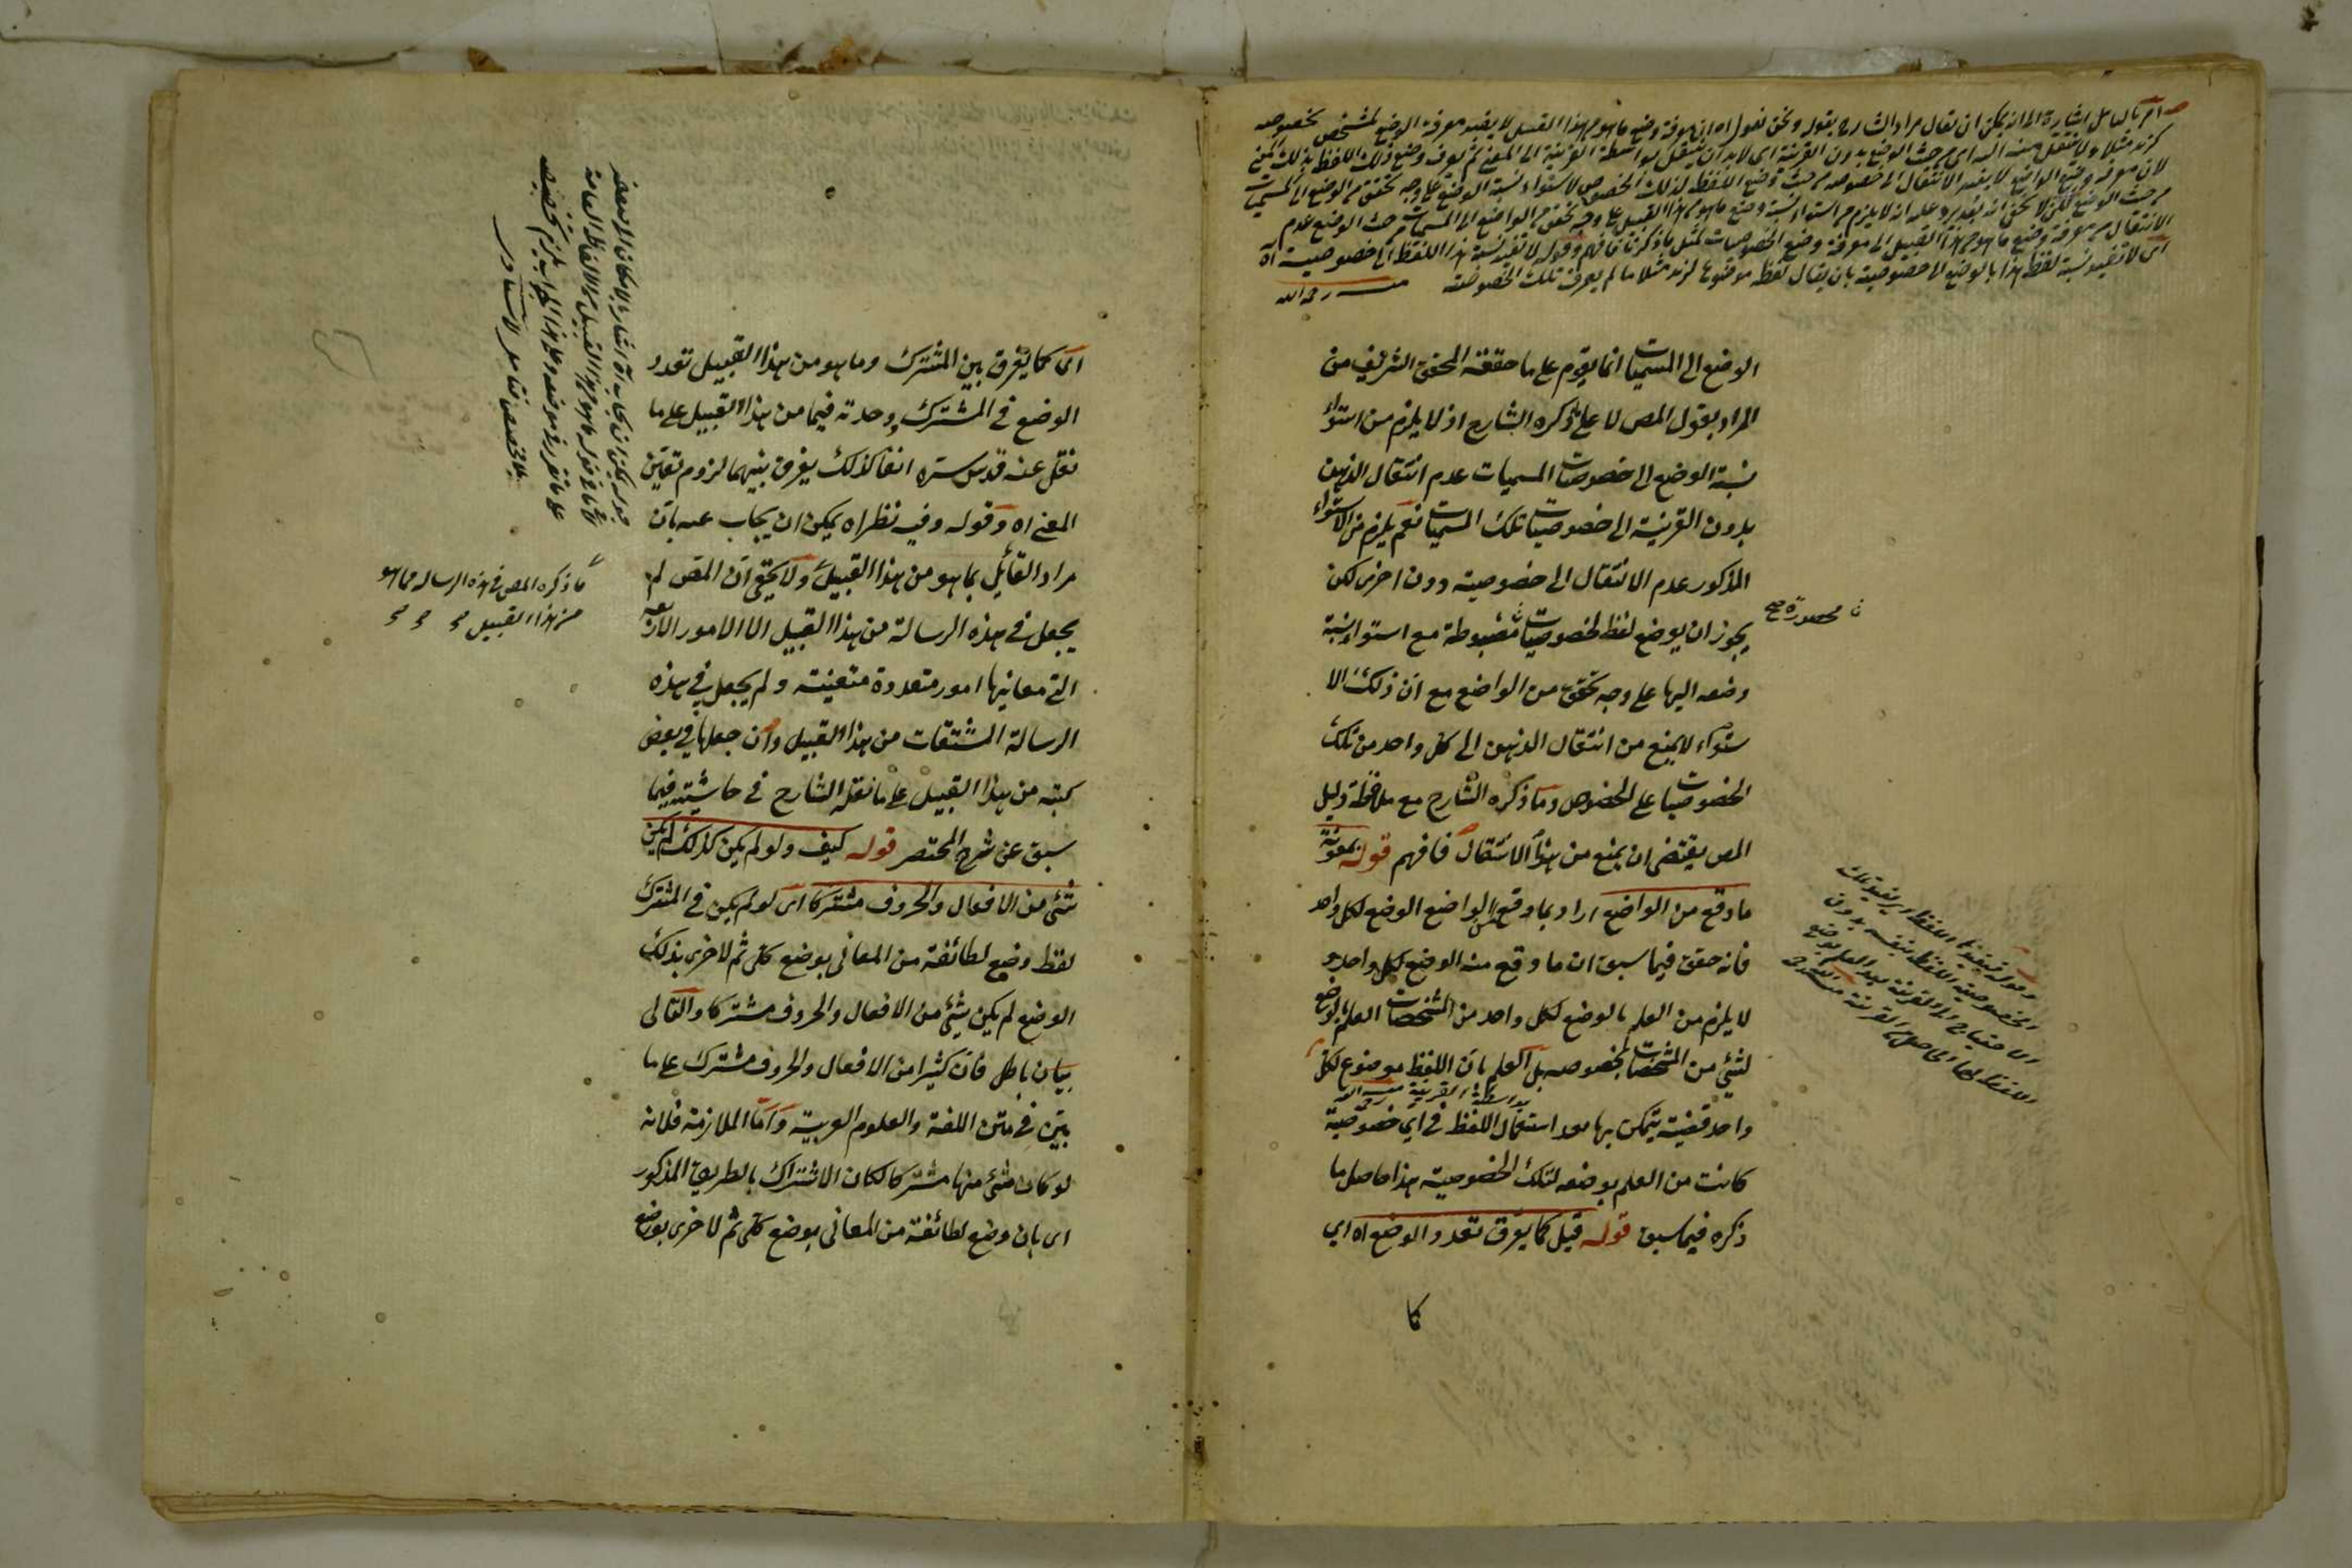 امر بالتأمل اشارة الى انه يمكن ان يقال مراد الشارح بقوله ونحن نقول اه ان معرفة وضع ما هو من هذا القبيل لا يفيد معرفة الوضع لمشخص بخصوصه
كزيد مثلا ولا ينتقل منه اليه اى من حيث الوضع بدون القرينة اى لابد ان ينتقل بواسطة القرينة الى المعنى ثم يعرف وضع ذلك اللفظ بذلك
لان معرفة وضع الواضع لا يفيد الانتقال الى خصوصه من حيث وضع اللفظ لذلك الخصوص لاستواء نسبة الوضع على وجه تحقق من الواضع الى المسميات
من حيث الوضع لكن لا يخفى انه يرد عليه انه لا يلزم من استواء نسبة وضع ما هو من هذا القبيل على وجه تحقق من الواضع الى المسميات من حيث الوضع عدم
الانتقال من معرفة وضع ما هو من هذا القبيل الى معرفة وضع الخصوصيات لمثل ما ذكرنا فافهم وقوله لا تفيد نسبة هذا اللفظ الى خصوصية اه
اى لا تفيد نسبة لفظ هذا بالوضع الى خصوصية بان يقال لفظ هذا موضوع لزيد مثلا ما لم يعرف تلك الخصوصية منه رحمه الله
الوضع الى المسميات انما يقوم على ما حققه المحقق الشريف من
المراد بقول المص لا على ما ذكره الشارح اذ لا يلزم من استواء
نسبة الوضع الى خصوصيات المسميات عدم انتقال الذهن
بدون القرينة الى خصوصيات تلك المسميات نعم يلزم من الاستواء
المذكور عدم الانتقال الى خصوصية دون اخرى لكن
يجوز ان يوضع لفظ لخصوصيات مضبوطة مع استواء نسبة
محصورة صح
وضعه اليها على وجه تحقق من الواضع مع ان ذلك الا
ستواء لا يمنع من انتقال الذهن الى كل واحد من تلك
الخصوصيات على الخصوص وما ذكره الشارح مع ملاحظة دليل
المص يقتضى ان يمنع من هذا الانتقال فافهم قوله بمعونة
ما وقع من الواضع اراد بما وقع من الواضع الوضع لكل واحد
فانه حقق فيما سبق ان ما وقع منه الوضع لكل واحد و
لا يلزم من العلم بالوضع لكل واحد من المشخصات العلم بالوضع
لشئ من المشخصات بخصوصه بل العلم بان اللفظ موضوع لكل
بواسطة القرينة منه رحمه الله
واحد قضية يتمكن بها بعد استعمال اللفظ فى اى خصوصية
كانت من العلم بوضعه لتلك الخصوصية هذا حاصل ما
ذكره فيما سبق قوله قيل كما يفرق تعدد الوضع اه اى
كا
اى كما يفرق بين المشترك وما هو من هذا القبيل تعدد
الوضع فى المشترك ووحدته فيما من هذا القبيل على ما
نقل عنه قدس سره انفا كذلك يفرق بينهما لزوم تعين
المعنى اه وقوله وفيه نظر اه يمكن ان يجاب عنه بان
مراد القائل بما هو من هذا القبيل ولا يخفى ان المص لم
ما ذكره المص فى هذه الرسالة مما هو
من هذا القبيل
يجعل فى هذه الرسالة من هذا القبيل الا الامور الاربعة
التى معانيها امور متعددة متعينة ولم يجعل فى هذه
الرسالة المشتقات من هذا القبيل وان جعلها فى بعض
كتبه من هذا القبيل على ما نقله الشارح فى حاشيته فيما
سبق عن شرح المختصر قوله كيف ولو لم يكن كذلك لم يكن
شئ من الافعال والحروف مشتركا اى لو لم يكن فى المشترك
لفظ وضع لطائفة من المعانى بوضع كلى ثم لاخرى بذلك
الوضع لم يكن شئ من الافعال والحروف مشتركا والتالى
بيان باطل فان كثيرا من الافعال والحروف مشترك على ما
بين فى متن اللغة والعلوم العربية واما الملازمة فلانه
لو كان شئ منها مشتركا لكان الاشتراك بالطريق المذكور
اى بان وضع لطائفة من المعانى بوضع كلى ثم لاخرى بوضع